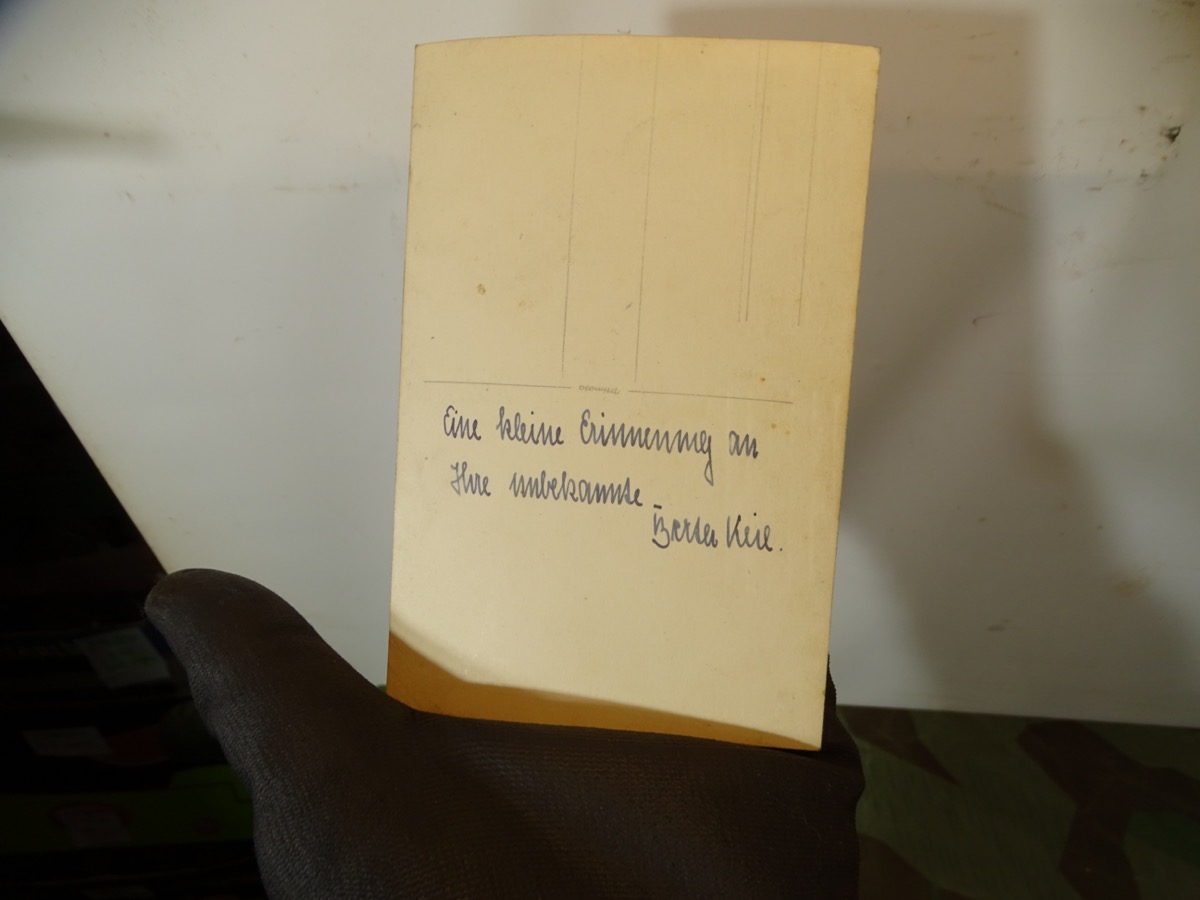 Eine kleine Erinnerung an
Ihre unbekannte
Keil.